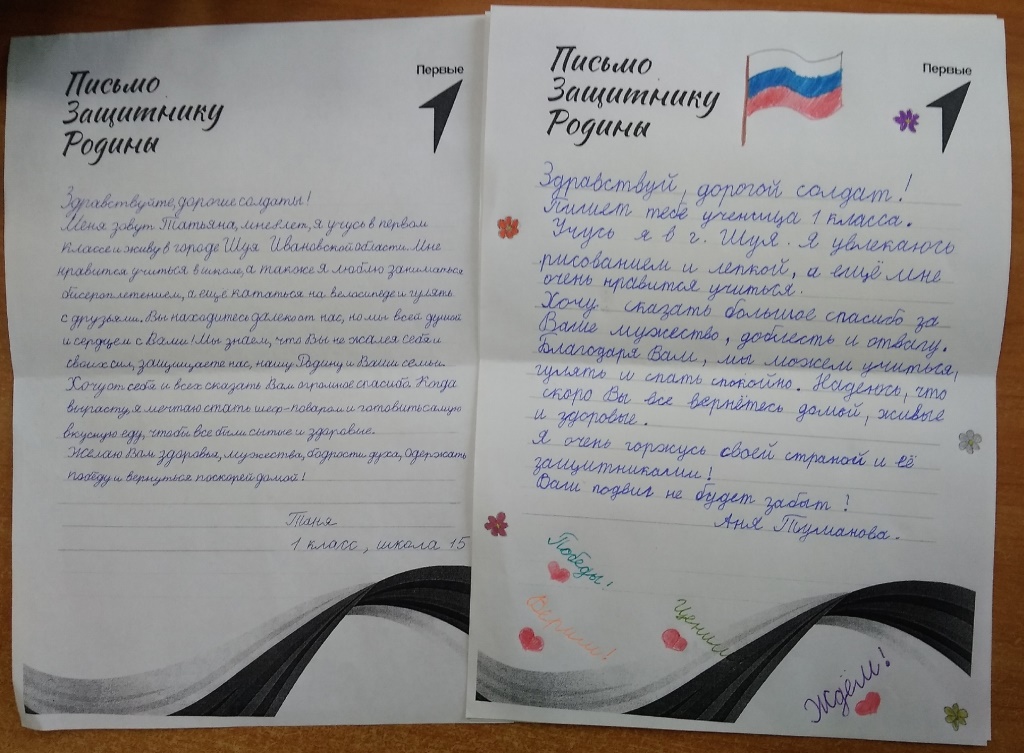 Письмо
Защитнику
Родины
Первые
Здравствуйте, дорогие солдаты!
Меня зовут Татьяна, мне 8 лет, я учусь в первом
классе и живу в городе Шуя Ивановской области. Мне
нравится учиться в школе, а также я люблю заниматься
бисероплетением, а ещё кататься на велосипеде и гулять
с друзьями. Вы находитесь далеко от нас, но мы всей душой
и сердцем с Вами! Мы знаем, что Вы не жалея себя и
своих сил, защищаете нас, нашу Родину и Ваши семьи.
Хочу от себя и всех сказать Вам огромное спасибо. Когда
вырасту, я мечтаю стать шеф-поваром и готовить самую
вкусную еду, чтобы все были сытые и здоровые.
Желаю Вам здоровья, мужества, бодрости духа, одержать
победу и вернуться поскорей домой!
Таня
1 класс, школа 15
Письмо
Защитнику
Родины
Первые
Здравствуй, дорогой солдат!
Пишет тебе ученица 1 класса.
Учусь я в г. Шуя. Я увлекаюсь
рисованием и лепкой, а ещё мне
очень нравится учиться.
Хочу сказать большое спасибо за
Ваше мужество, доблесть и отвагу.
Благодаря Вам, мы можем учиться,
гулять и спать спокойно. Надеюсь, что
скоро Вы все вернётесь домой, живые
и здоровые.
Я очень горжусь своей страной и её
защитниками!
Ваш подвиг не будет забыт!
Аня Туманова.
Победы!
Верим!
Ценим
Ждём!